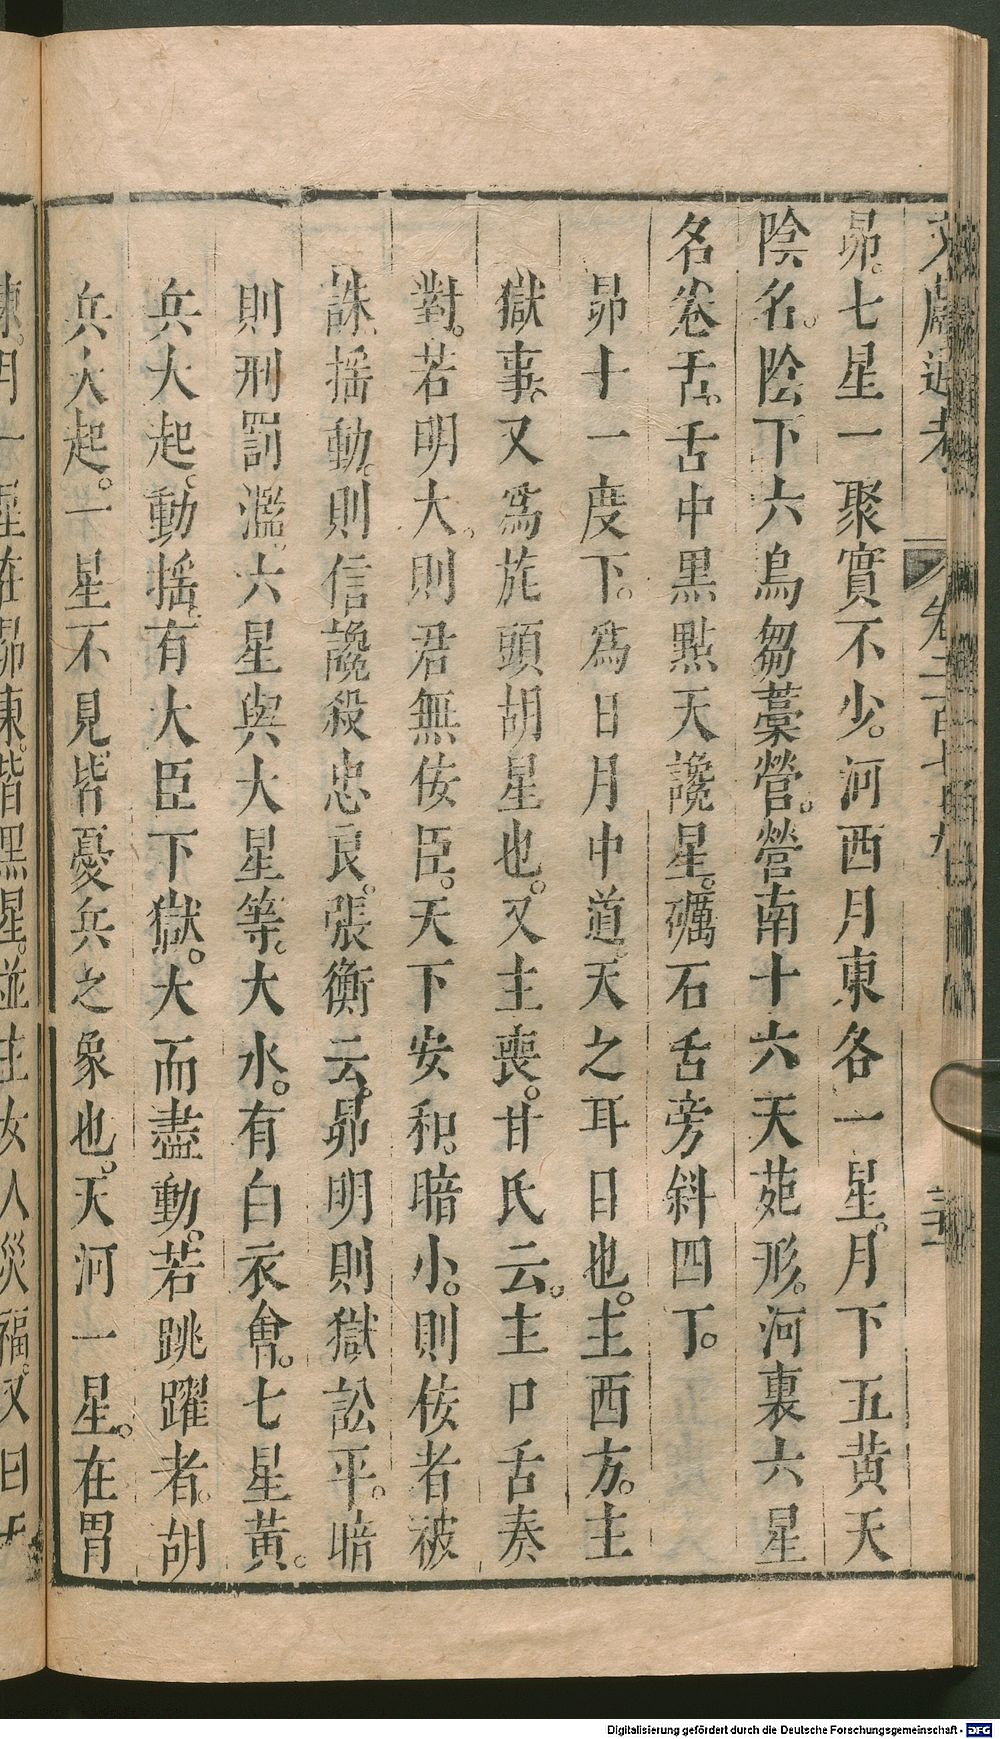 文獻通考
昴。七星一聚實不少。河西月東各一星。月下五黄天
陰名。陰下六烏芻藁營。營南十六天苑形。河裏六星
名卷舌。舌中黑點天讒星。礪石舌旁斜四丁。
昴十一度下。爲日月中道。天之耳目也。主西方。主
獄事。又爲旄頭胡星也。又主喪。甘氏云。主口舌奏
對。若明大。則君無佞臣。天下安和。暗小。則佞者被
誅。揺動。則信讒殺忠良。張衡云。昴明則獄訟平。暗
則刑罰濫。六星與大星等。大水。有白衣會。七星黃。
兵大起。動揺。有大臣下獄。大而盡動。若跳躍者。胡
兵大起。一星不見。皆憂兵之象也。天河一星。在胃
東。月一星在昴東。皆黑星。並主女人災福。又曰天
Digitalisierung gefördert durch die Deutsche Forschungsgemeinschaft - DFG